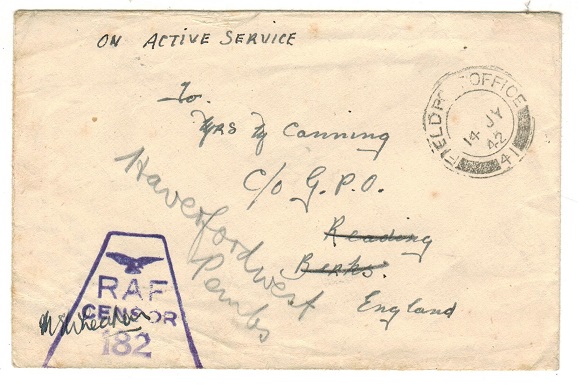 ON ACTIVE SERVICE
FIELD POST OFFICE
14 JY
42
41
To.
Mrs Canning
C/o G.P.O.
Reading
Berks.
England
Haverfordwest
Pembs
RAF
CENSOR
182